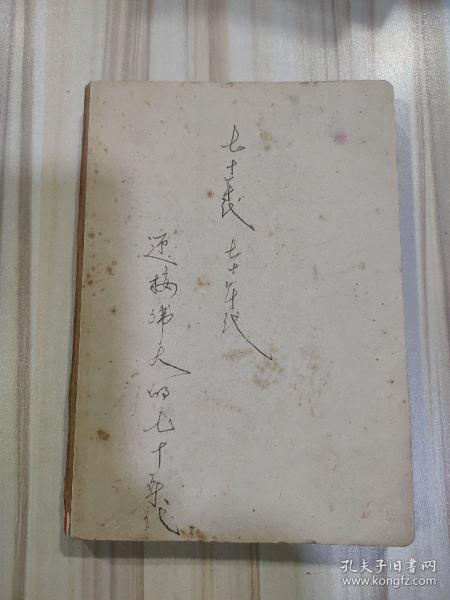 七十年代 七十年代
迎接伟大的七十年代
孔夫子旧书网
www.kongfz.com